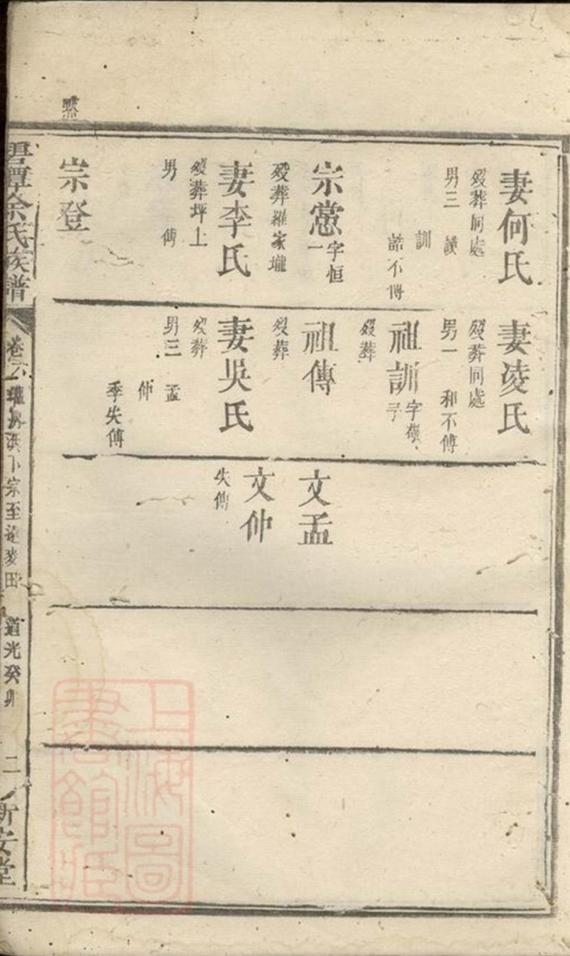 妻何氏
歿葬同處
男三 讀
訓
諮不傳
宗憲
字恒一
歿葬羅家壠
妻李氏
歿葬坪上
男 傳
宗登
妻凌氏
歿葬同處
男一 和不傳
祖訓
歿葬
祖傳
歿葬
妻吳氏
歿葬
男三 孟
仲
季失傳
文孟
文仲
失傳
余氏族譜
道光癸卯
二
新安堂
上海圖書館藏